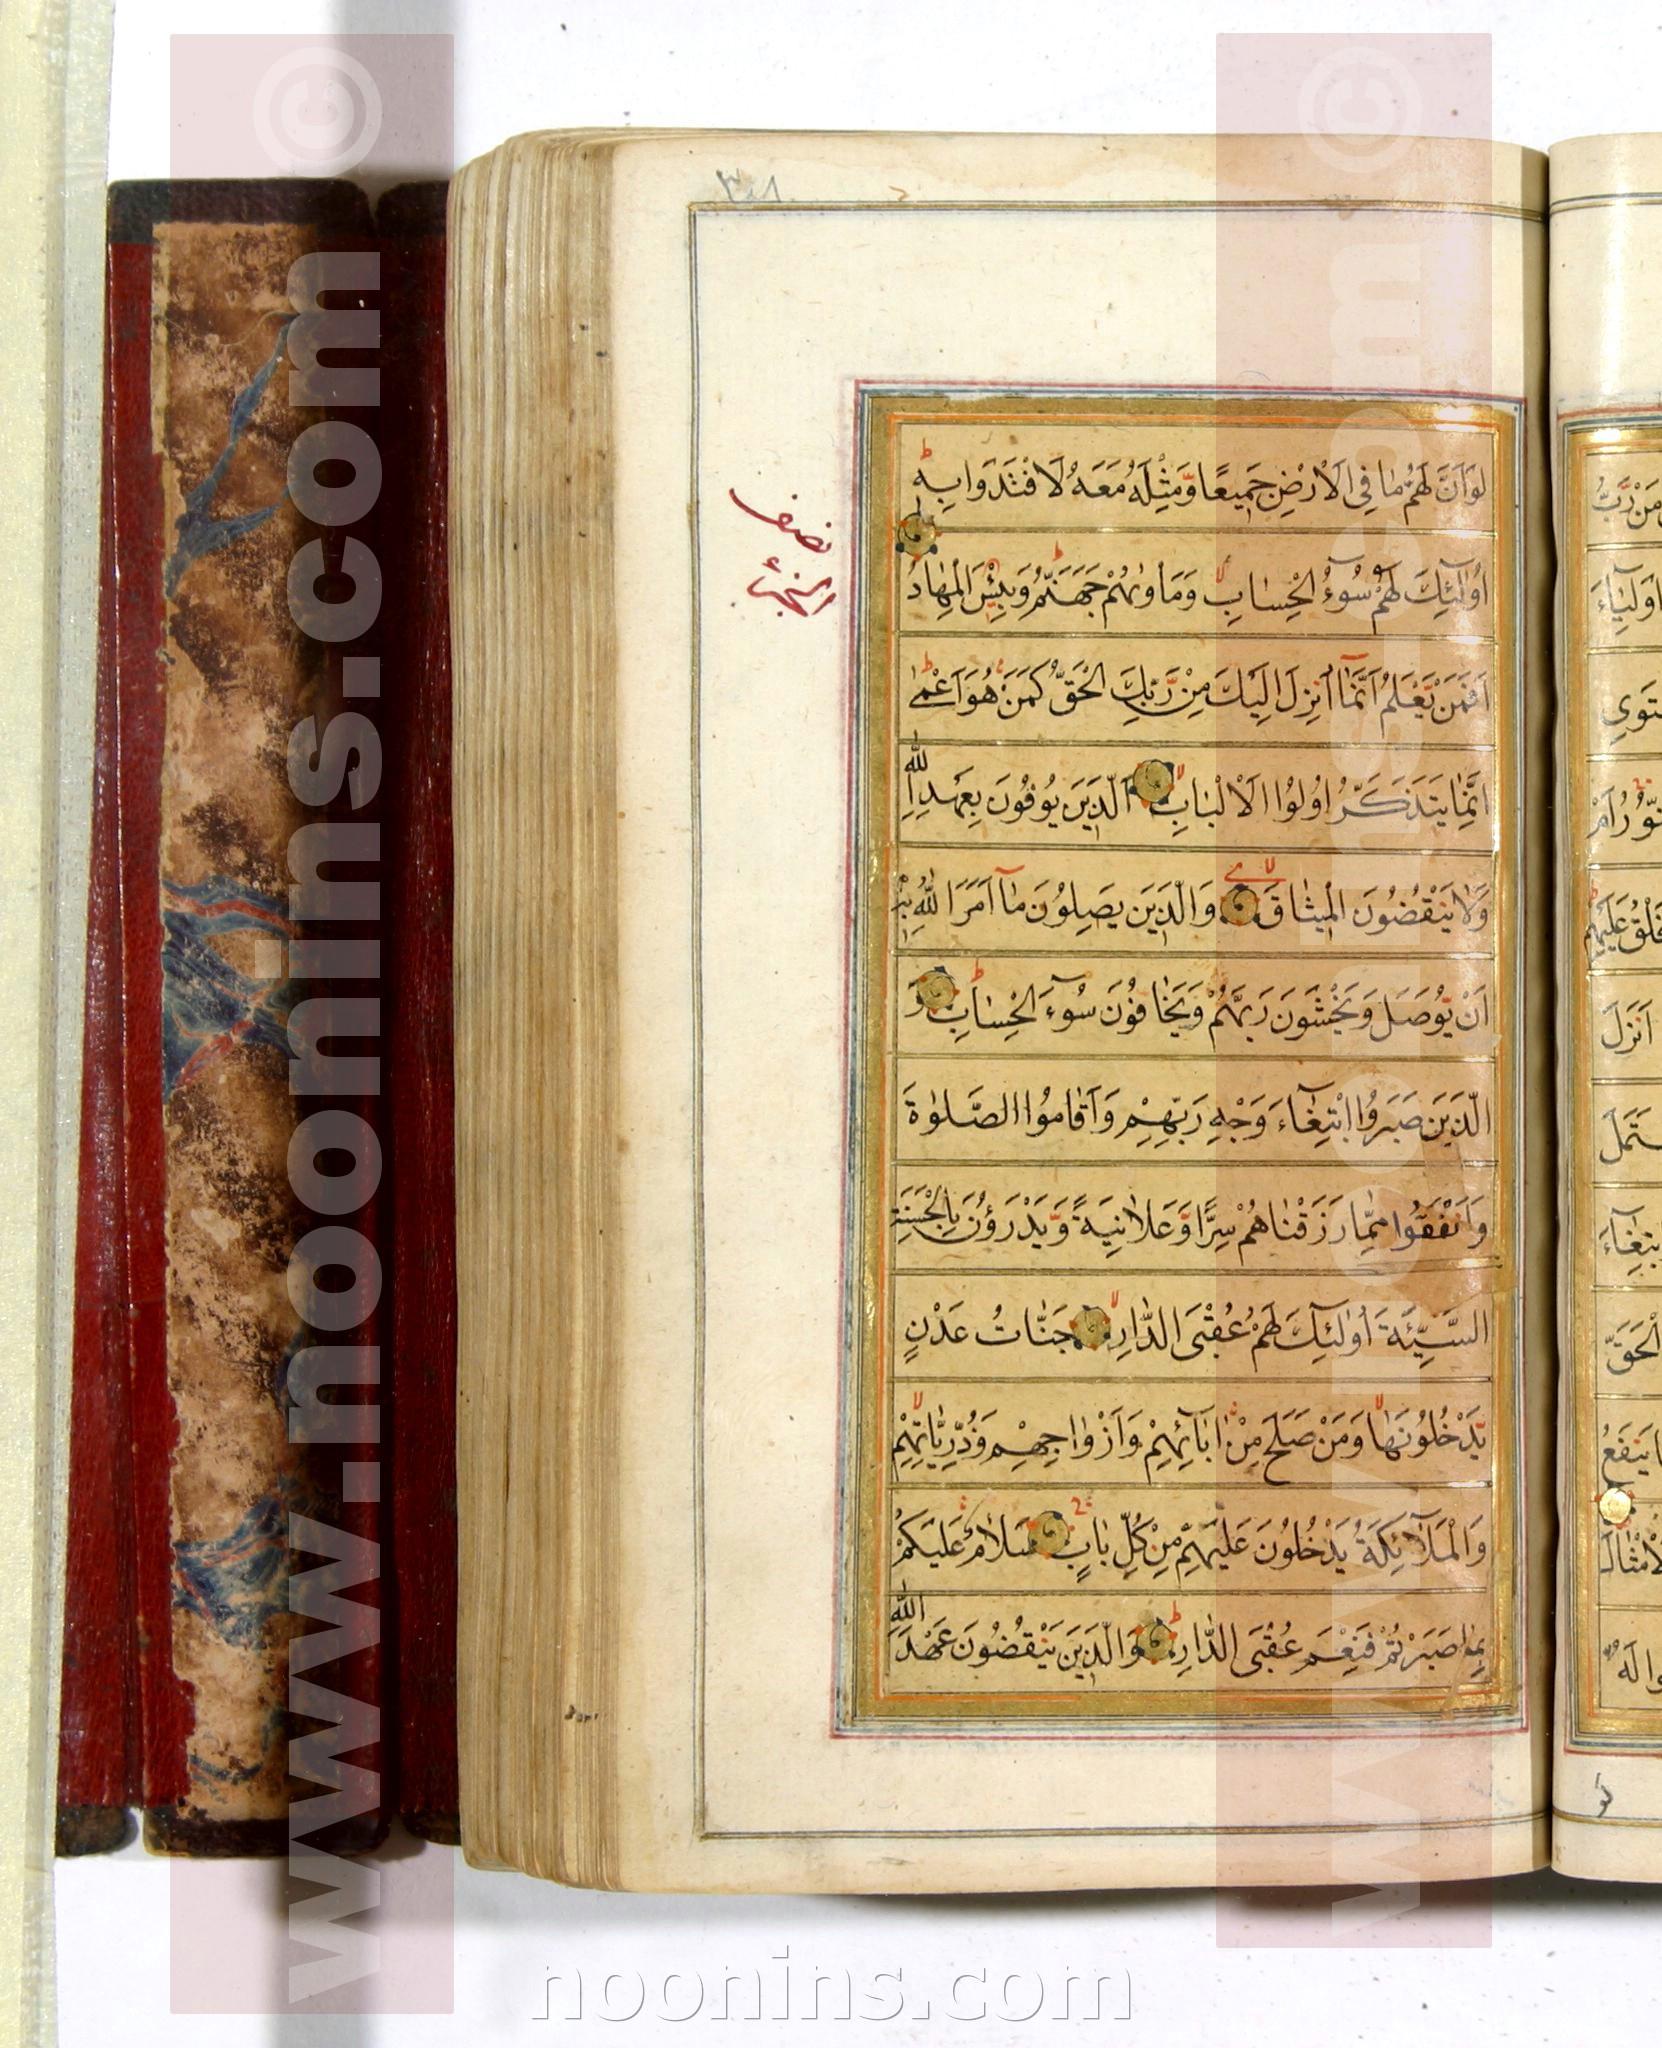 ٣٠٨
نصف
الجزء
لَوْ اَنَّ لَهُمْ مٰا فِي الْاَرْضِ جَمٖيعًا وَّمِثْلَهُ مَعَهُ لَا فْتَدَوْا بِهٖ ط
اُولٰئِكَ لَهُمْ سُوٓءُ الْحِسٰابِ لا وَمَأْوٰيهُمْ جَهَنَّمُ ط وَبِئْسَ الْمِهٰادُ
اَفَمَنْ يَّعْلَمُ اَنَّمٰٓا اُنْزِلَ اِلَيْكَ مِنْ رَّبِّكَ الْحَقُّ كَمَنْ هُوَ اَعْمٰى ط
اِنَّمٰا يَتَذَكَّرُ اُولُوا الْاَلْبٰابِ لا اَلَّذٖينَ يُوفُونَ بِعَهْدِ اللّٰهِ
وَلٰا يَنْقُضُونَ الْمٖيثٰاقَ لا وَالَّذٖينَ يَصِلُونَ مٰٓا اَمَرَ اللّٰهُ بِهٖ
اَنْ يُّوصَلَ وَيَخْشَوْنَ رَبَّهُمْ وَيَخٰافُونَ سُوٓءَ الْحِسٰابِ ط وَ
الَّذٖينَ صَبَرُوا ابْتِغٰٓاءَ وَجْهِ رَبِّهِمْ وَاَقٰامُوا الصَّلٰوةَ
وَاَنْفَقُوا مِمّٰا رَزَقْنٰاهُمْ سِرًّا وَّعَلٰانِيَةً وَّيَدْرَؤُنَ بِالْحَسَنَةِ
السَّيِّئَةَ اُولٰٓئِكَ لَهُمْ عُقْبَى الدّٰارِ لا جَنّٰاتُ عَدْنٍ
يَّدْخُلُونَهٰا لا وَمَنْ صَلَحَ مِنْ اٰبٰٓائِهِمْ وَاَزْوٰاجِهِمْ وَذُرِّيّٰاتِهِمْ لا
وَالْمَلٰٓائِكَةُ يَدْخُلُونَ عَلَيْهِمْ مِنْ كُلِّ بٰابٍ سَلٰامٌ عَلَيْكُمْ
بِمٰا صَبَرْتُمْ فَنِعْمَ عُقْبَى الدّٰارِ ط وَالَّذٖينَ يَنْقُضُونَ عَهْدَ اللّٰهِ
www.noonins.com ©
noonins.com